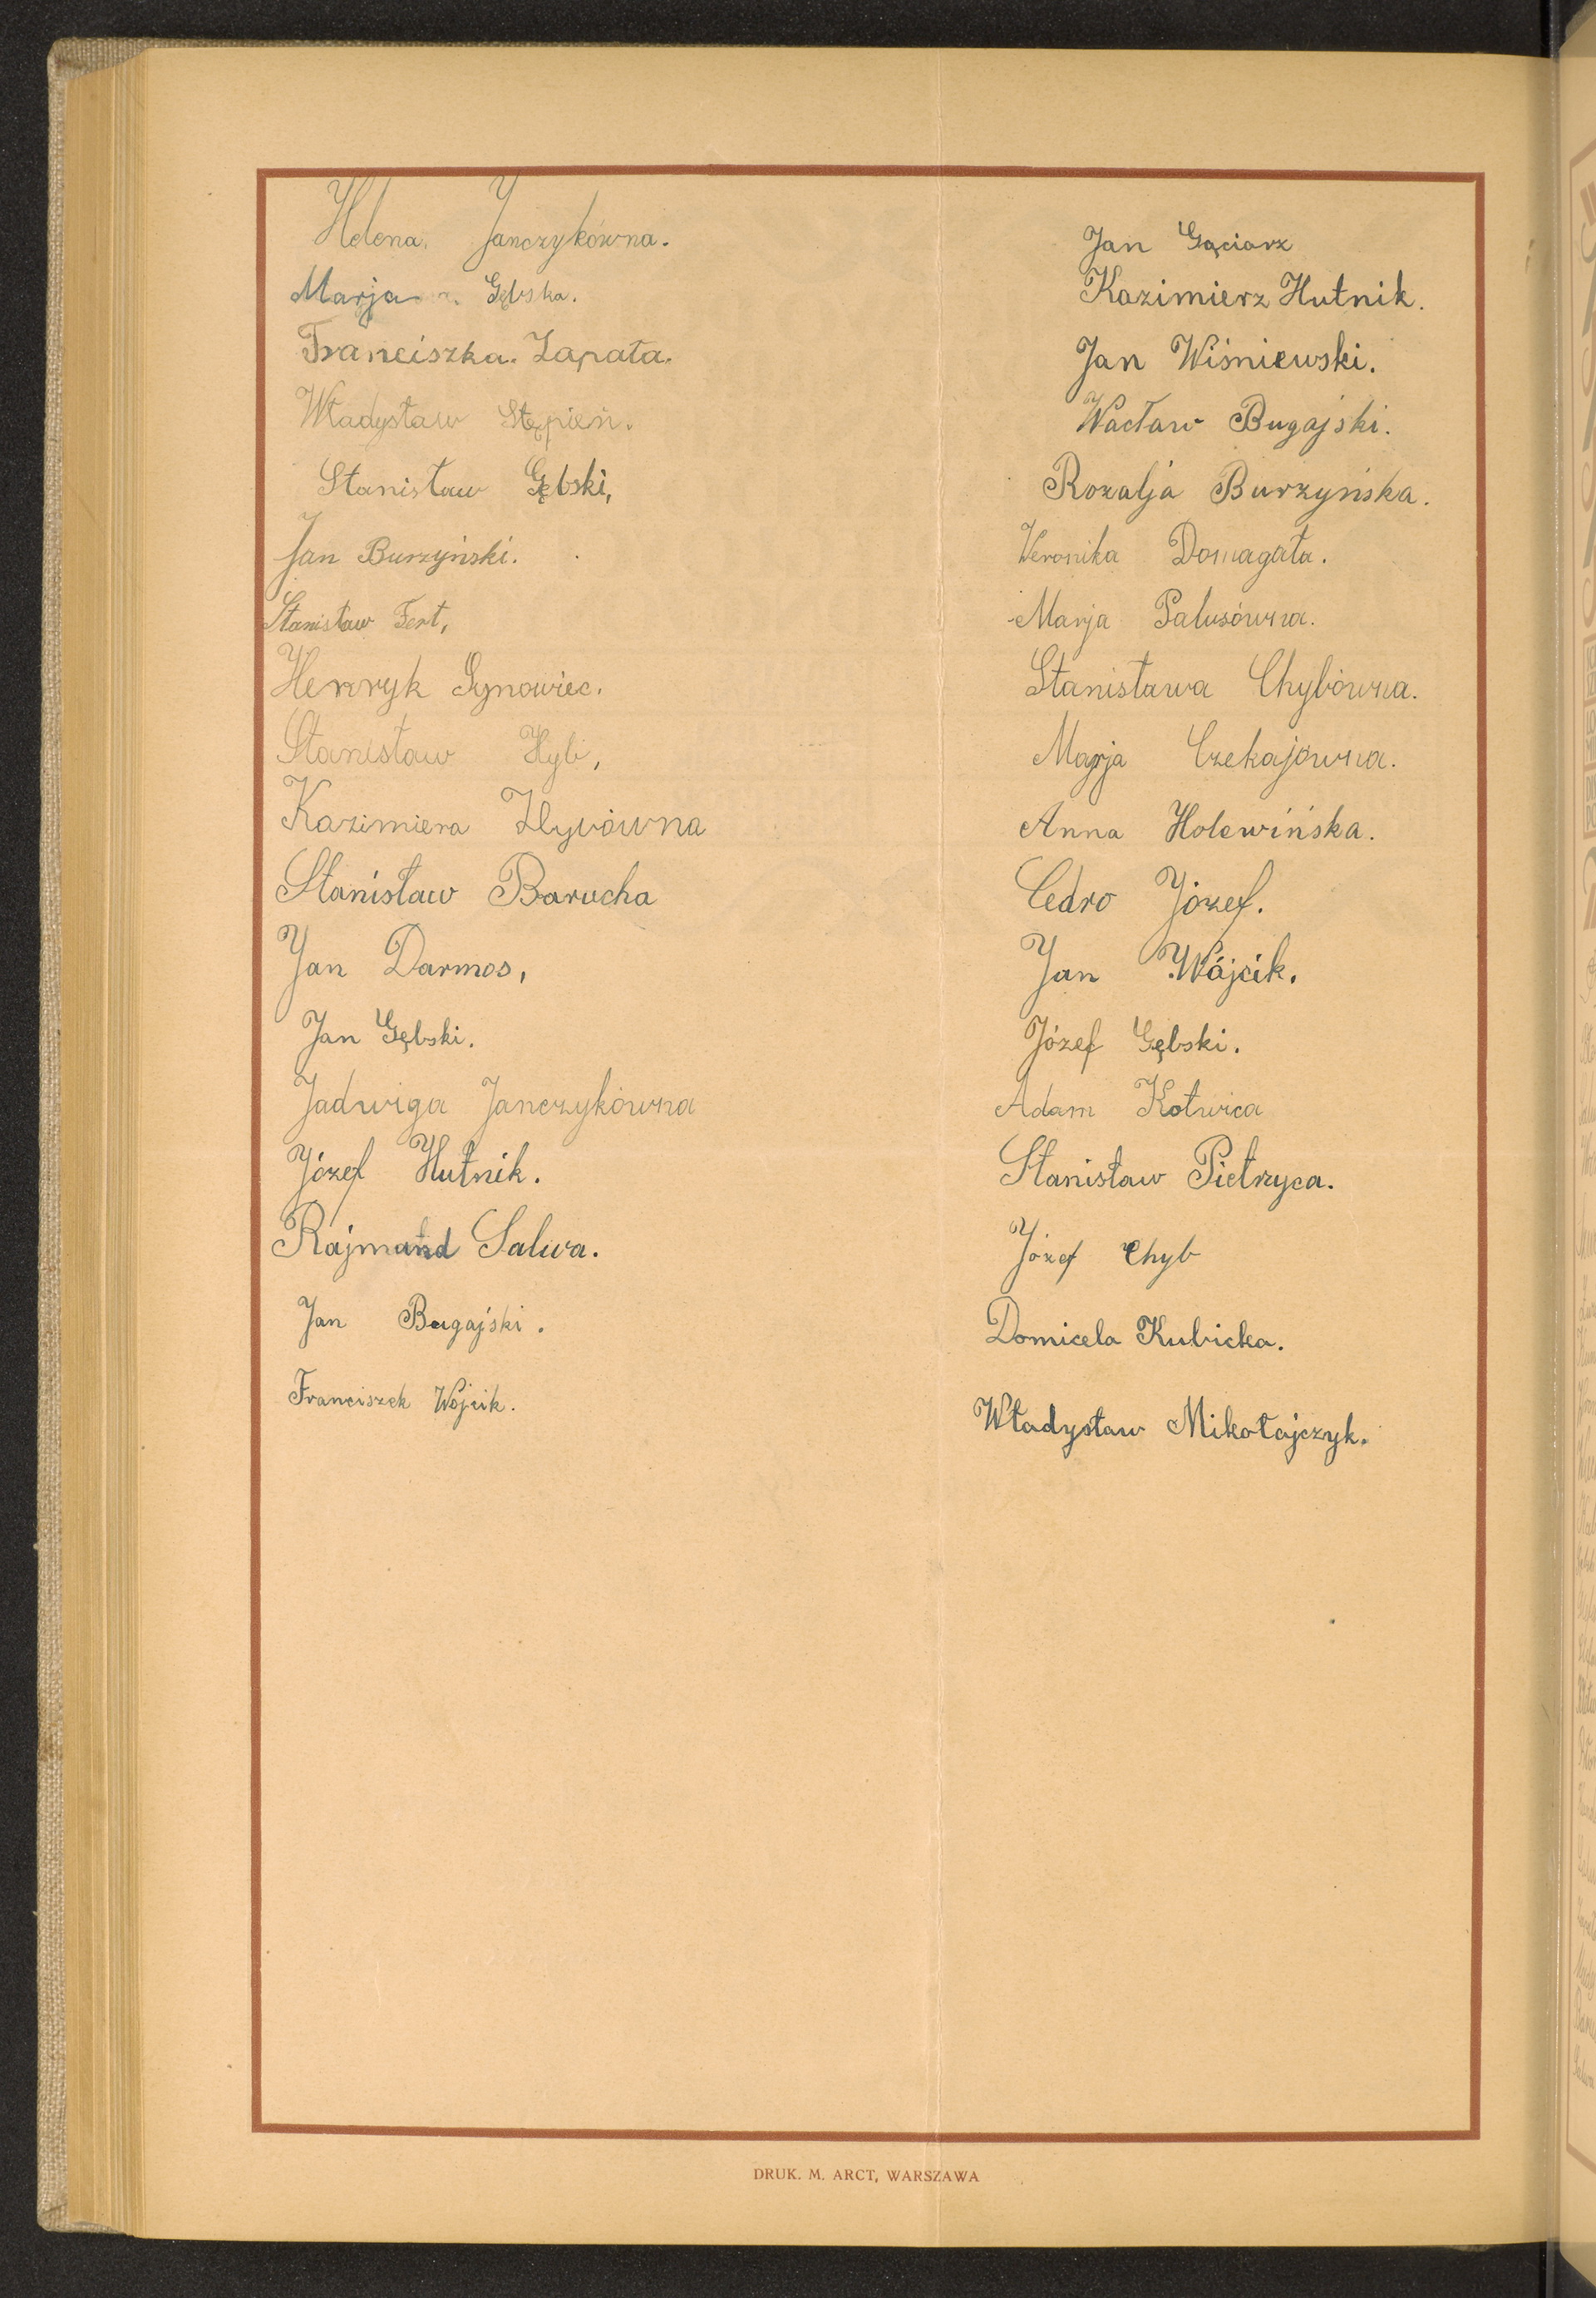 Helena. Janczykówna.
Marja Gębska.
Franciszka. Zapała.
Władysław Stępień.
Stanisław Gębski,
Jan Burzyński.
Stanisław Fert,
Henryk Synowiec.
Stanisław Hyb,
Kazimiera
Stanisław Barucha
Jan Darmos,
Jan Gębski.
Jadwiga Janczykówna
Józef Hutnik.
Rajmund Salwa.
Jan Bugajski.
Franciszek Wójcik.
Jan Gąciarz
Kazimierz Hutnik.
Jan Wiśniewski.
Wacław Bugajski.
Rozalja Burzyńska.
Weronika Domagała.
Marja Palusówna.
Stanisława Chybówna.
Marja Czekajówna.
Anna Holewińska.
Cedro Józef.
Jan Wójcik.
Józef Gębski.
Adam Kotwica
Stanisław Pietrzyca.
Józef Chyb
Domicela Kubicka.
Władysław Mikołajczyk.
DRUK. M. ARCT, WARSZAWA